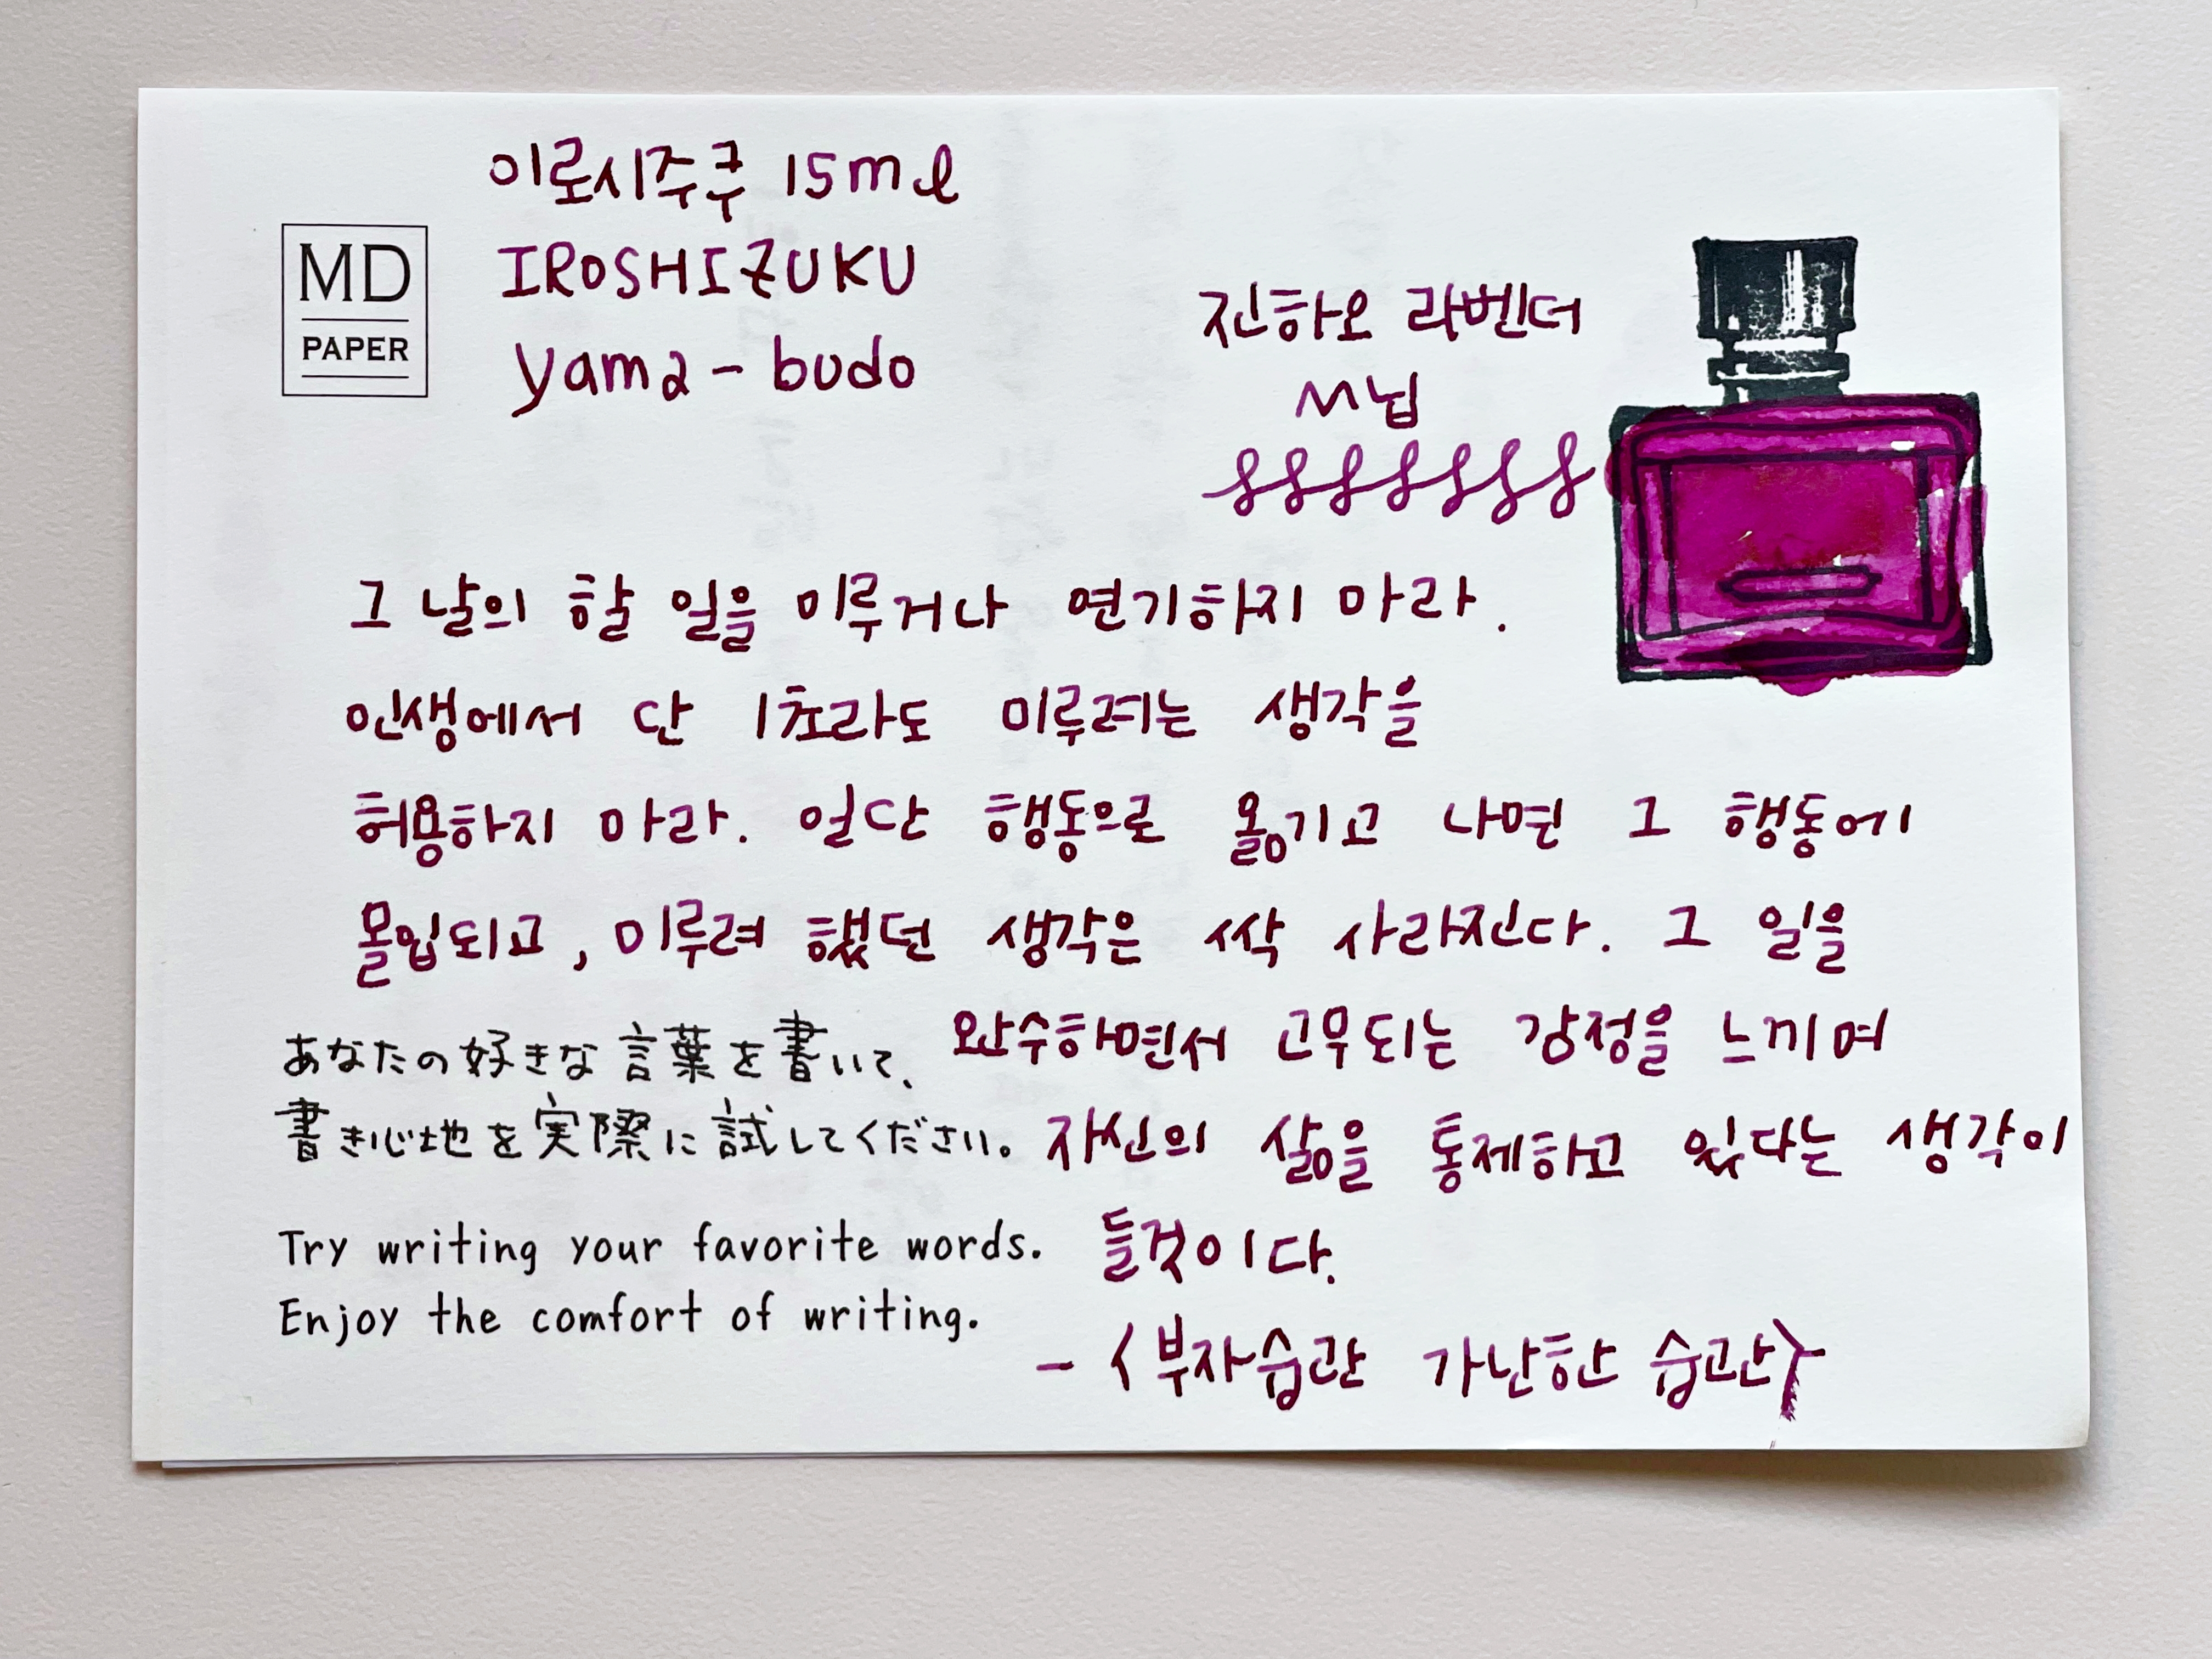 이로시주쿠 15ml
IROSHIZUKU
yama-budo
MD
PAPER
진하오 라벤더
M닙
그 날의 할 일을 미루거나 연기하지 마라.
인생에서 단 1초라도 미루려는 생각을
허용하지 마라. 일단 행동으로 옮기고 나면 그 행동에
몰입되고, 미루려 했던 생각은 싹 사라진다. 그 일을
완수하면서 고무되는 감정을 느끼며
자신의 삶을 통제하고 있다는 생각이
들것이다.
- <부자습관 가난한 습관>
あなたの好きな言葉を書いて、
書き心地を実際に試してください。
Try writing your favorite words.
Enjoy the comfort of writing.